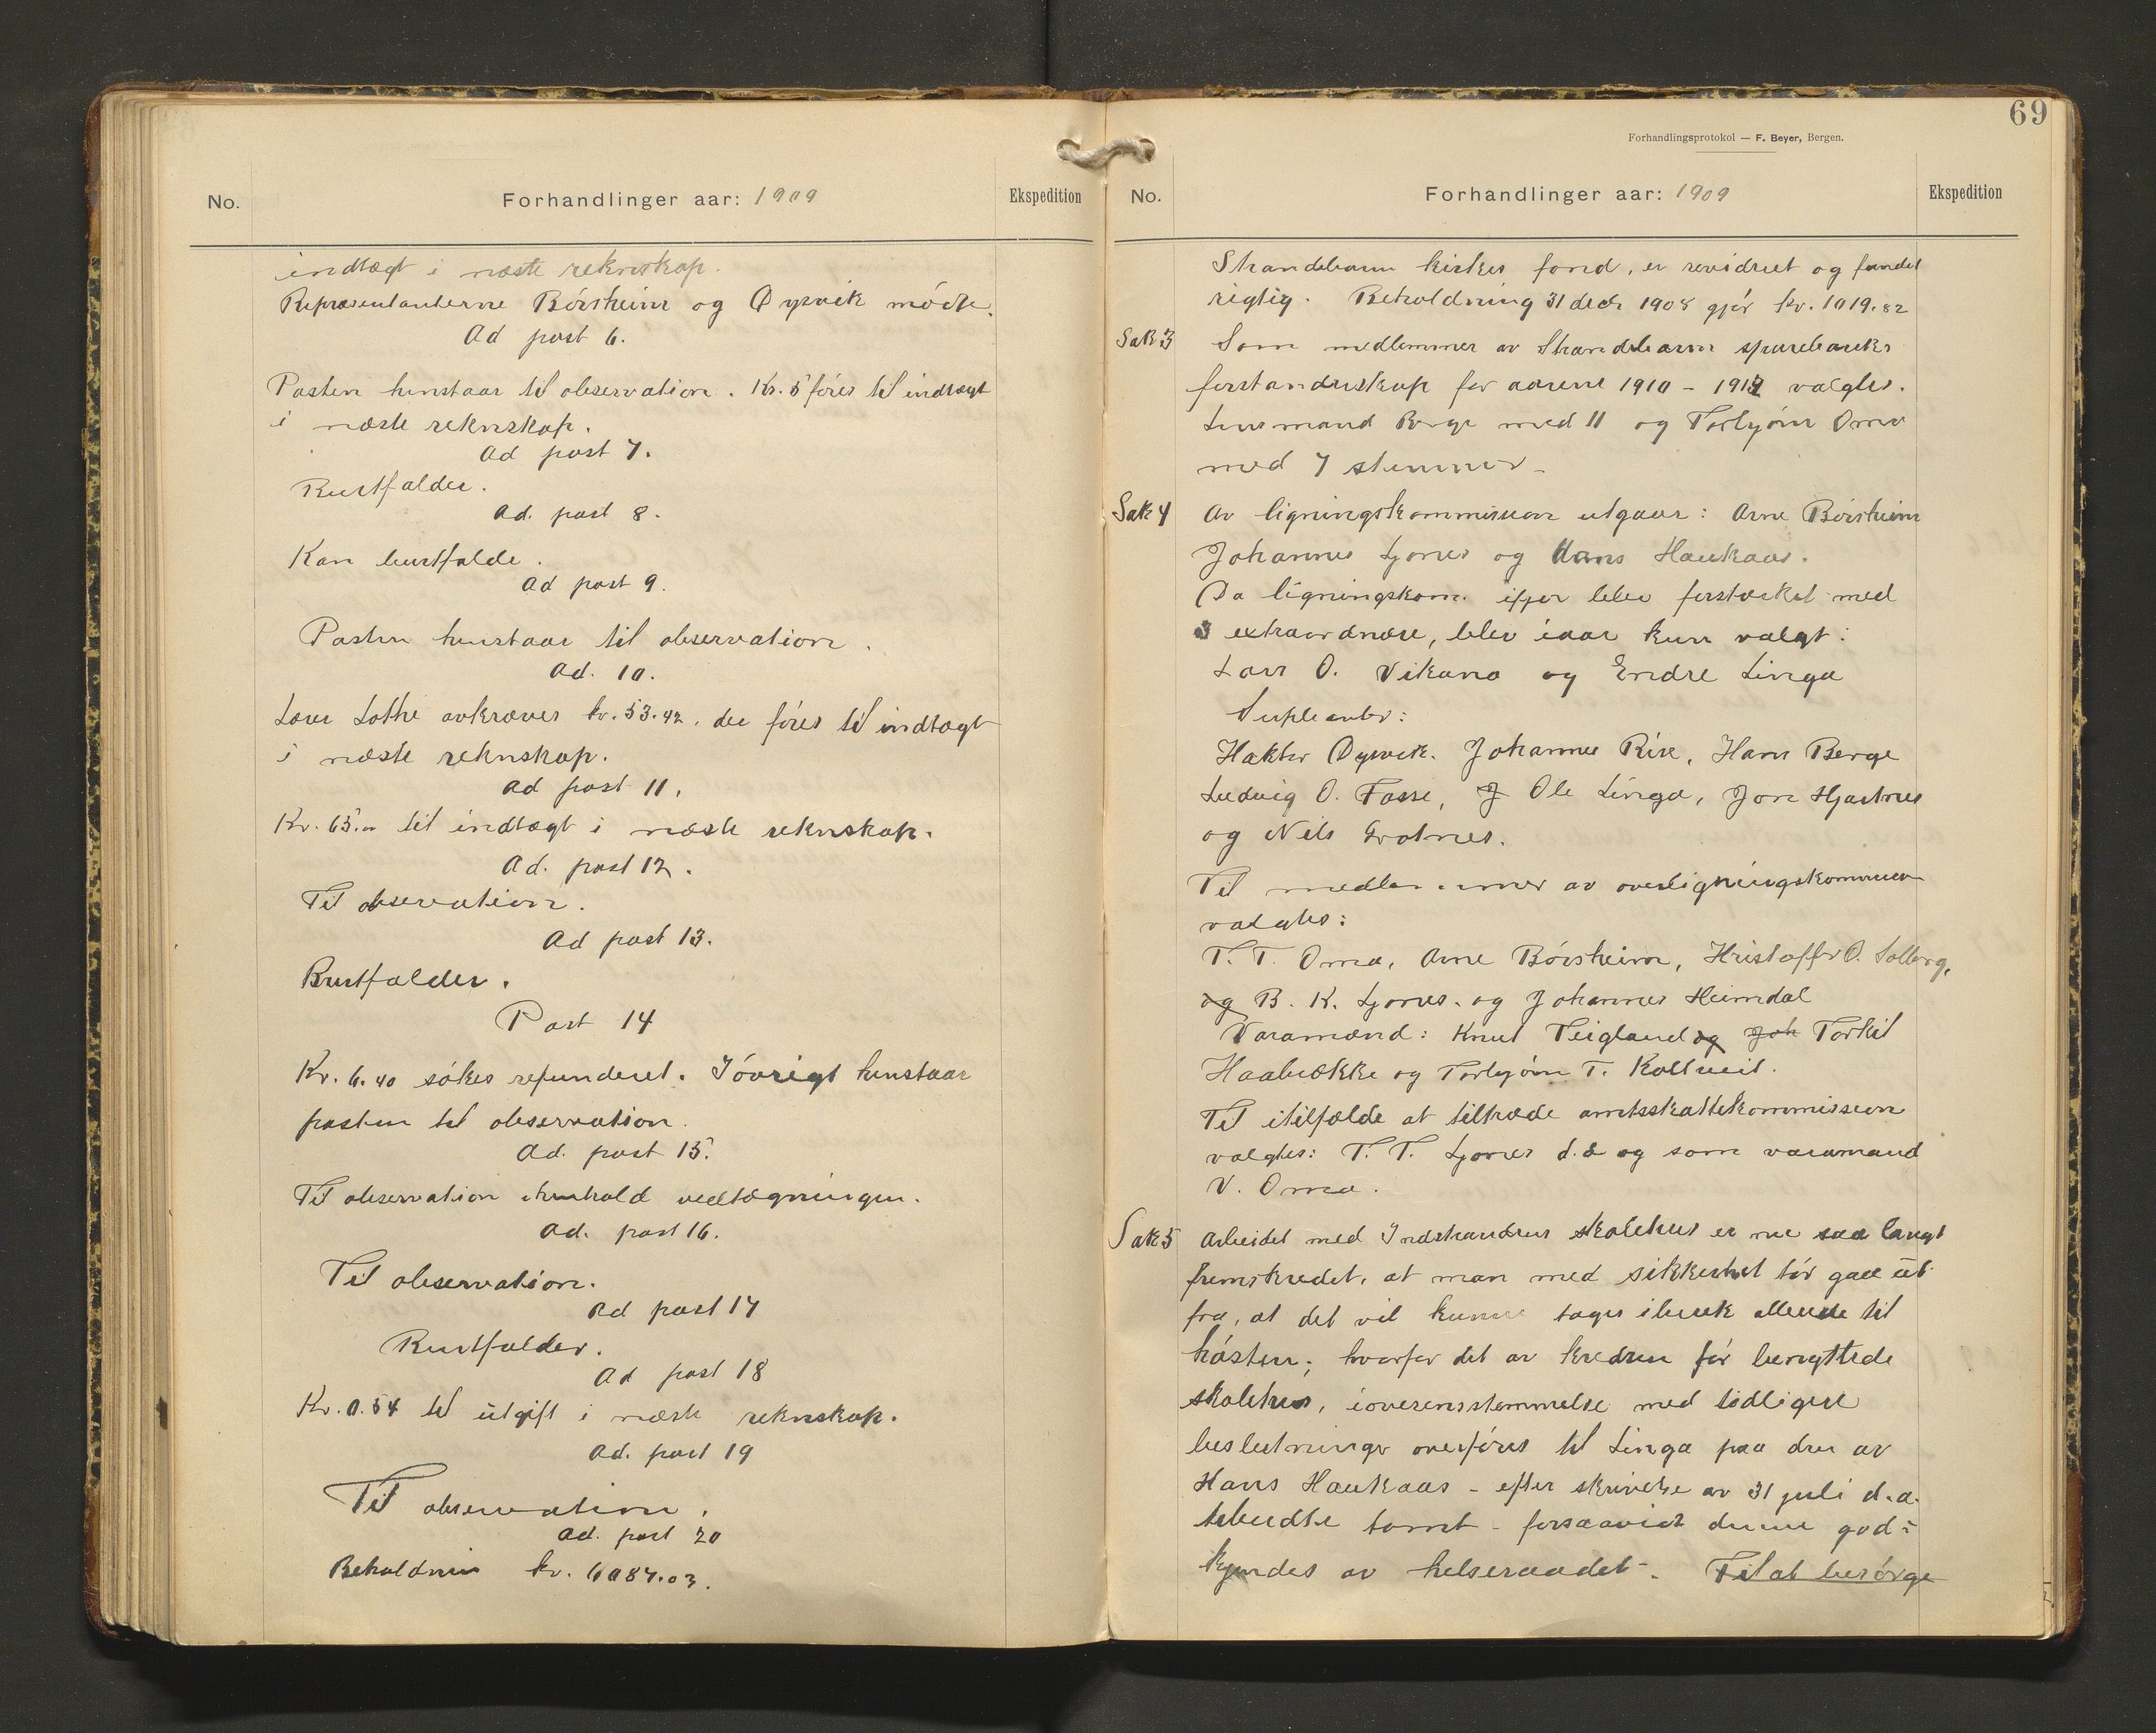 No.
Forhandlinger aar: 1909
Ekspedition
indtægt i næste reknskap.
Repræsentanterne Börsheim og Öysvik mödte.
Ad post 6.
Posten henstaar til observation. Kr. 5 föres til indtægt
i næste reknskap.
Ad post 7.
Bortfalder.
Ad. post 8.
Kan bortfalde.
Ad post 9.
Posten henstaar til observation.
Ad. 10.
Lærer Lothe avkræves kr. 53.42, der föres til indtægt
i næste reknskap.
Ad post 11.
Kr. 65.00 til indtægt i næste reknskap.
Ad. post 12.
Til observation.
Ad post 13.
Bortfalder.
Post 14
Kr. 6.40 sökes refunderet. Iövrigt henstaar
posten til observation.
Ad. post 15.
Til observation ihenhold vedtægningen.
Ad. post 16.
Til observation.
Ad post 17
Bortfalder.
Ad post 18
Kr. 0.54 til utgift i næste reknskap.
Ad. post 19
Til observation.
Ad. post 20
Beholdning kr. 6087.03.
69
Forhandlingsprotokol — F. Beyer, Bergen.
No.
Forhandlinger aar: 1909
Ekspedition
Strandebarm kirkes fond, er revidret og fundet
rigtig. Beholdning 31 decbr 1908 gjör kr. 1019.82
Sak 3 Som medlemmer av Strandebarm sparebanks
forstanderskap for aarene 1910 – 1912 valgtes.
Lensmand Berge med 11 og Torbjörn Oma
med 7 stemmer –
Sak 4 Av ligningskommissionen utgaar: Arne Börsheim
Johannes Ljones og Hans Haukaas.
Da ligningskom. ifjor blev forstærket med
3 extraordnære, blev iaar kun valgt:
Lars O. Vikane og Endre Linga
Supleanter:
Haktor Öysvik. Johannes Rise, Hans Berge
Ludvig O. Fosse, J Ole Linga, Jon Hjartnes
og Nils Grotnes.
Til medlemmer av overligningskommissionen
valgtes:
T. T. Oma, Arne Börsheim, Kristoffer O. Solberg,
og B. K. Ljones. og Johannes Heimdal
Varamænd: Knut Teigland og Joh Torkil
Haabrække og Torbjörn T. Koltveit.
Til itilfælde at tiltræde amtsskattekommissionen
valgtes: T. T. Ljones d.e og som varamand
V. Oma.
Sak 5 Arbeidet med Indstrandens skolehus er nu saa langt
fremskredet, at man med sikkerhet tör gaa ut
fra, at det vil kunne tages ibruk allerede til
hösten; hvorfor det av kredsen för benyttede
skolehus, ioverensstemmelse med tidligere
beslutninger overföres til Linga paa den av
Hans Haukaas – efter skrivelse av 31 juli d.a.
tilbudte tomt – forsaavidt denne god-
kjendes av helseraadet –. Til at besörge